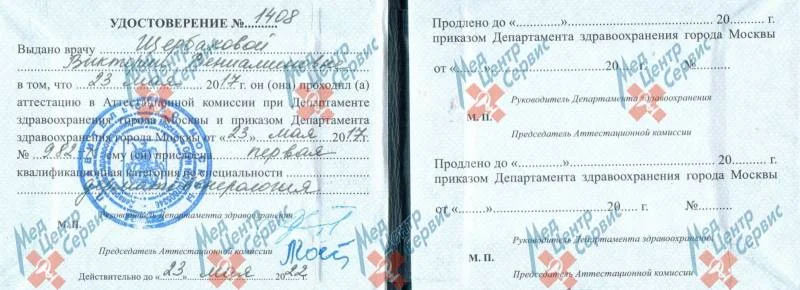 УДОСТОВЕРЕНИЕ №..1408
Выдано врачу Щербаковой
Виктории Вениаминовне
в том, что 23 мая 2017 г. он (она) проходил (а)
аттестацию в Аттестационной комиссии при Департаменте
здравоохранения города Москвы и приказом Департамента
здравоохранения города Москвы от «23» мая 2017
№ 982-. ему (ей) присвоена первая
квалификационная категория по специальности
дерматовенерология
Руководитель Департамента здравоохранения
М.П.
Председатель Аттестационной комиссии
Действительно до «23» мая 2022 г.
Продлено до «..............».......................................... 20.......... г.
приказом Департамента здравоохранения города Москвы
от «.......»................................ 20...... г. №............
Руководитель Департамента здравоохранения
М. П.
Председатель Аттестационной комиссии
Продлено до «..............».......................................... 20.......... г.
приказом Департамента здравоохранения города Москвы
от «.......»................................ 20...... г. №............
Руководитель Департамента здравоохранения
М. П.
Председатель Аттестационной комиссии
Мед Центр Сервис
Мед Центр Сервис
Мед Сервис
Мед Центр Сервис
Мед Центр Сервис